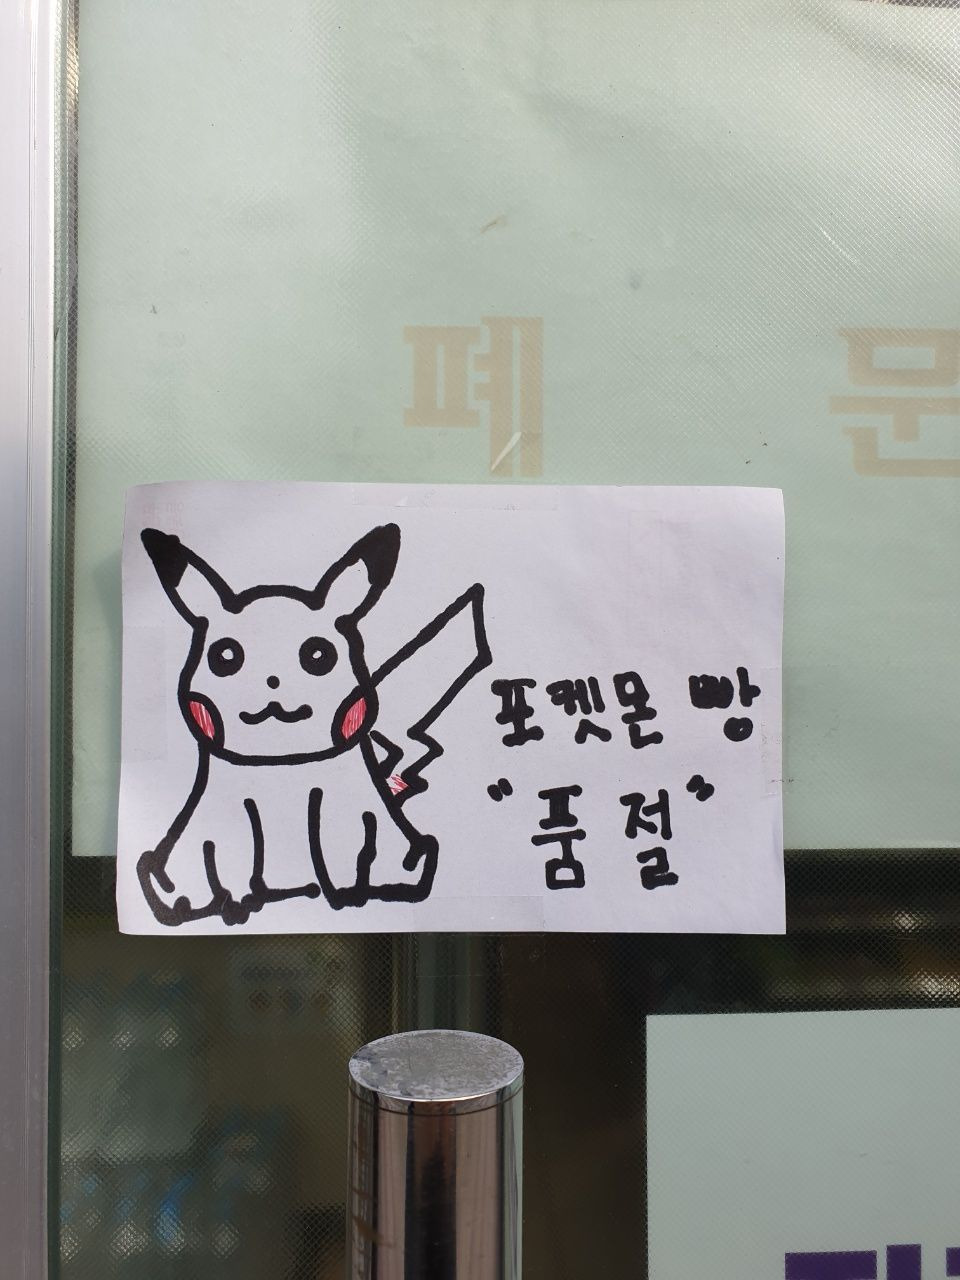 폐 문
포켓몬 빵
"품절"